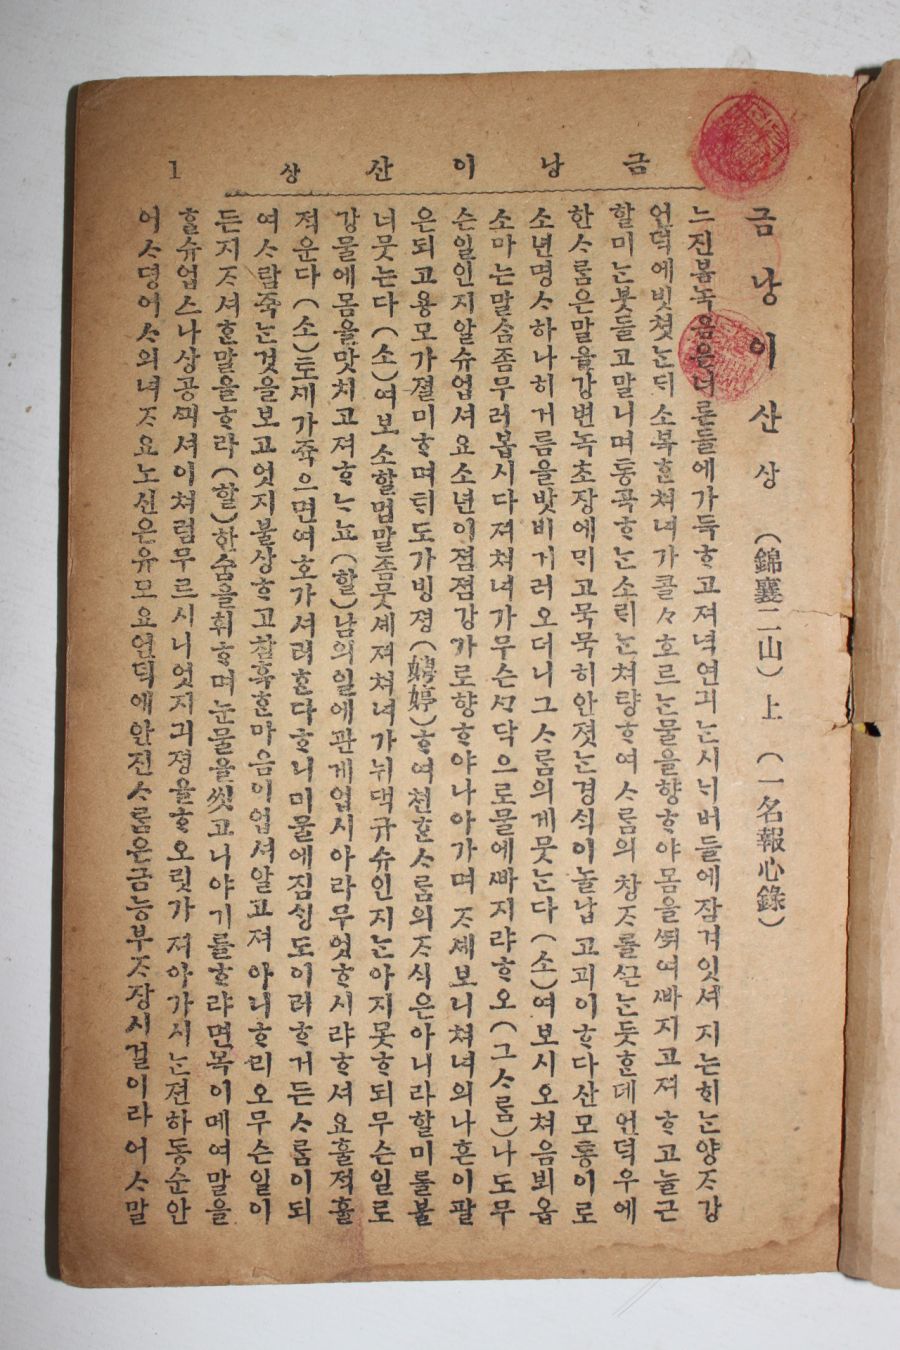 금낭이산 상 1
금낭이산 상 (錦襄二山) 上 (一名報心錄)
느진봄녹음은너른들에가득ᄒᆞ고져녁연긔ᄂᆞᆫ시ᄂᆡ버들에잠겨잇셔 지는ᄒᆡᄂᆞᆫ양ᄌᆞ강
언덕에빗쳣ᄂᆞᆫᄃᆡ소복ᄒᆞᆫ쳐녀가콜々흐르ᄂᆞᆫ물을향ᄒᆞ야몸을ᄯᅱ여ᄲᅡ지고져ᄒᆞ고늘근
할미ᄂᆞᆫ붓들고말니며통곡ᄒᆞᄂᆞᆫ소ᄅᆡᄂᆞᆫ쳐량ᄒᆞ여ᄉᆞ룸의 창ᄌᆞ를ᄭᅳᆫᄂᆞᆫ듯ᄒᆞᆫ데언덕우에
한ᄉᆞ룸은말을강변녹초장에ᄆᆡ고묵묵히안졋ᄂᆞᆫ경식이놀납고괴이ᄒᆞ다산모통이로
소년명ᄉᆞ하나히거름을밧비거러오더니그ᄉᆞ룸의게뭇ᄂᆞᆫ다 (소)여보시오쳐음뵈옵
소마는말솜좀무러봅시다져쳐녀가무슨ᄭᆞ닥으로물에ᄲᅡ지랴ᄒᆞ오 (그ᄉᆞ룸)나도무
슨일인지알슈업셔요소년이졈졈강가로향ᄒᆞ야나아가며ᄌᆞ셰보니쳐녀의나흔이팔
은되고용모가졀미ᄒᆞ며ᄐᆡ도가빙졍(娉婷)ᄒᆞ여쳔ᄒᆞᆫᄉᆞ룸의ᄌᆞ식은아니라할미를불
너뭇는다 (소)여보소할멈말좀뭇셰져쳐녀가뉘댁규슈인지는아지못ᄒᆞ되무슨일로
강물에몸을맛치고져ᄒᆞᄂᆞ뇨 (할)남의일에관계업시아라무엇ᄒᆞ시랴ᄒᆞ셔요훌젹훌
젹운다 (소)토ᄭᅵ가쥭으면여호가셔러ᄒᆞᆫ다ᄒᆞ니미물에짐싱도이러ᄒᆞ거든ᄉᆞ룸이되
여ᄉᆞ람쥭ᄂᆞᆫ것을보고엇지불상ᄒᆞ고참혹ᄒᆞᆫ마음이업셔알고져 아니ᄒᆞ리오무슨일이
든지ᄌᆞ셔ᄒᆞᆫ말을ᄒᆞ라 (할)한숨을휘ᄒᆞ며눈물을씻고니야기를ᄒᆞ랴면목이메여말을
ᄒᆞᆯ슈업스나상공ᄭᅴ셔이쳐럼무르시니엇지긔졍을ᄒᆞ오릿가 져아가시ᄂᆞᆫ젼하동순안
어ᄉᆞ명어ᄉᆞ의녀ᄌᆞ요노신은유모요언덕에안진ᄉᆞ룸은금능부ᄌᆞ장시걸이라어ᄉᆞ말